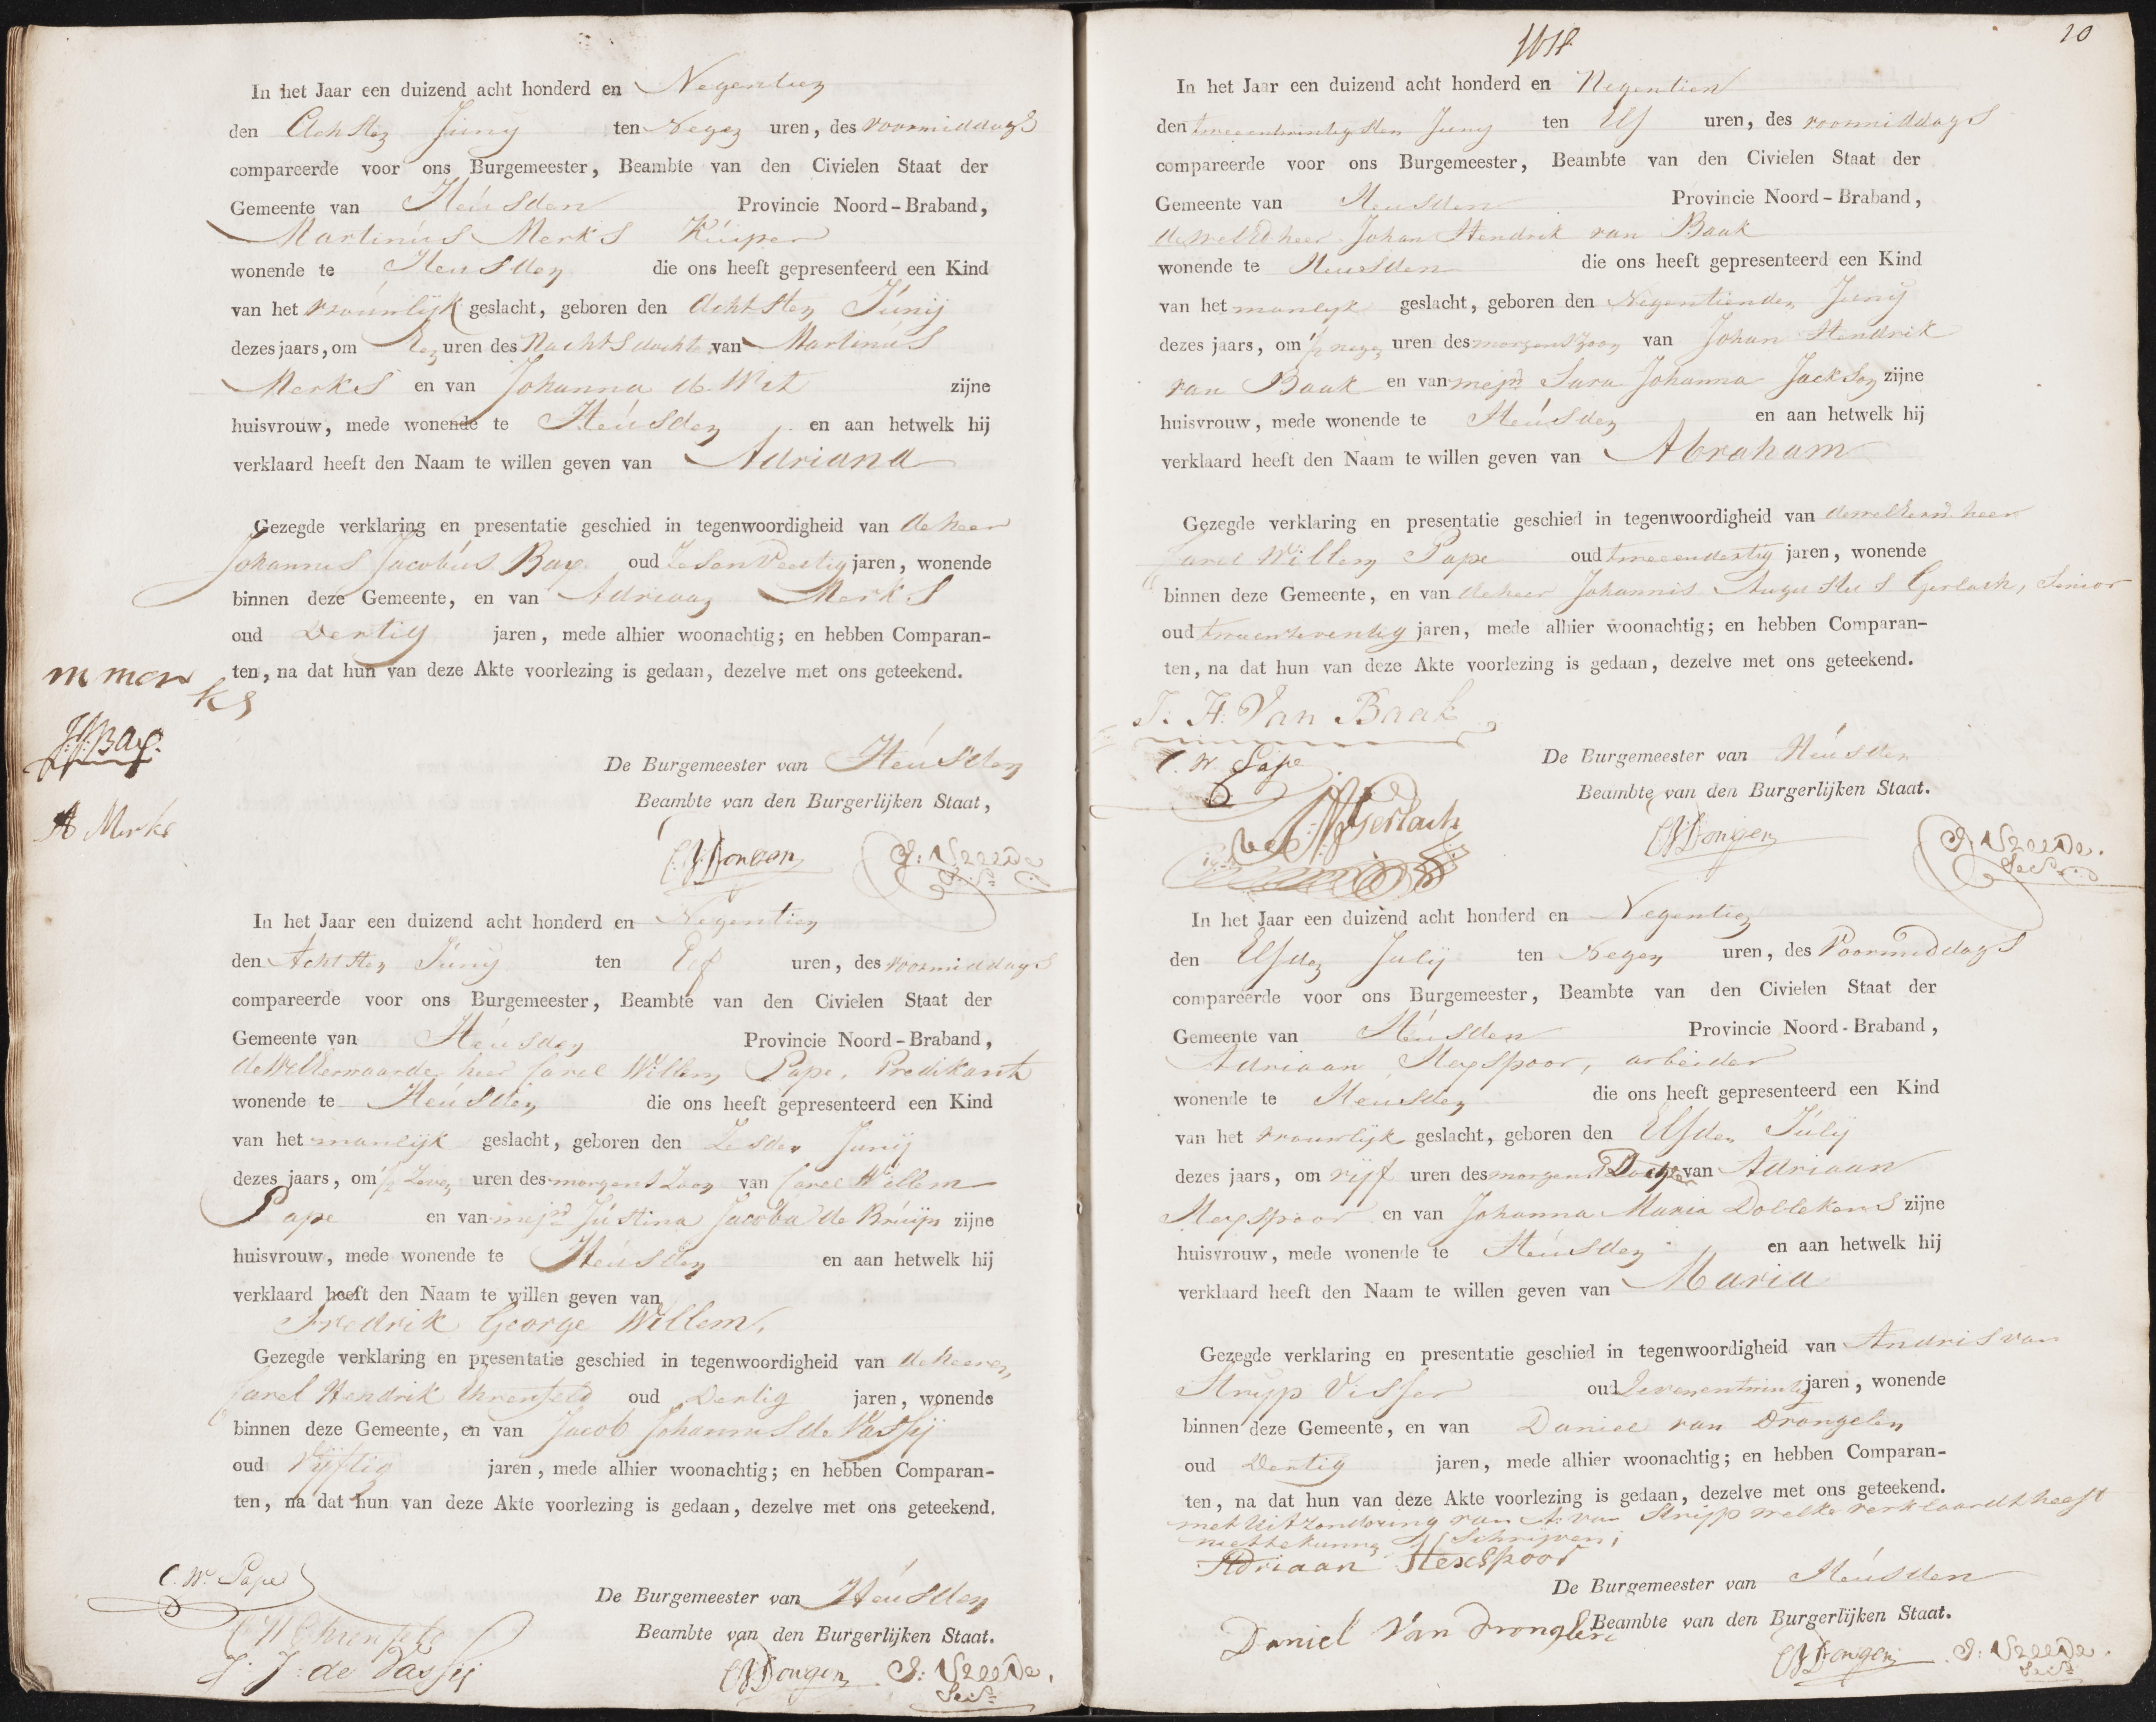 In het Jaar een duizend acht honderd en Negentien
den Achtsten Junij ten Negen uren, des voormiddags
compareerde voor ons Burgemeester, Beambte van den Civielen Staat der
Gemeente van Heusden Provincie Noord-Braband,
Martinus Merks Kuiper
wonende te Heusden die ons heeft gepresenteerd een Kind
van het vrouwlijk geslacht, geboren den Achtsten Junij
dezes jaars, om uren des Nachts dochter van Martinus
Merks en van Johanna de Wit zijne
huisvrouw, mede wonende te Heusden en aan hetwelk hij
verklaard heeft den Naam te willen geven van Adriana
Gezegde verklaring en presentatie geschied in tegenwoordigheid van de heer
Johannes Jacobus Bax oud Zesenveertig jaren, wonende
binnen deze Gemeente, en van Adriaan Merks
oud Dertig jaren, mede alhier woonachtig; en hebben Comparan-
ten, na dat hun van deze Akte voorlezing is gedaan, dezelve met ons geteekend.
m merks
J:J: Bax.
A Merks
De Burgemeester van Heusden
Beambte van den Burgerlijken Staat,
Dongen J: Vreede
Sec:
In het Jaar een duizend acht honderd en Negentien
den Achtsten Junij ten Elf uren, des voormiddags
compareerde voor ons Burgemeester, Beambte van den Civielen Staat der
Gemeente van Heusden Provincie Noord-Braband,
de WelEerwaarde heer Carel Willem Pape, Predikant
wonende te Heusden die ons heeft gepresenteerd een Kind
van het manlijk geslacht, geboren den Zesden Junij
dezes jaars, om ½ Zeven uren des morgens Zoon van Carel Willem
Pape en van mejd Justina Jacoba de Bruijn zijne
huisvrouw, mede wonende te Heusden en aan hetwelk hij
verklaard heeft den Naam te willen geven van
Fredrik George Willem.
Gezegde verklaring en presentatie geschied in tegenwoordigheid van de heeren
Carel Hendrik Ehrenfeld oud Dertig jaren, wonende
binnen deze Gemeente, en van Jacob Johannes de Vassij
oud Vijftig jaren, mede alhier woonachtig; en hebben Comparan-
ten, na dat hun van deze Akte voorlezing is gedaan, dezelve met ons geteekend.
C. W. Pape
C H Ehrenfeld
J: J: de Vassij
De Burgemeester van Heusden
Beambte van den Burgerlijken Staat.
Dongen J: Vreede.
Sec:
10
In het Jaar een duizend acht honderd en Negentien
den tweeentwintigsten Junij ten Elf uren, des voormiddags
compareerde voor ons Burgemeester, Beambte van den Civielen Staat der
Gemeente van Heusden Provincie Noord-Braband,
de welEd heer Johan Hendrik van Baak
wonende te Heusden die ons heeft gepresenteerd een Kind
van het manlijk geslacht, geboren den Negentienden Junij
dezes jaars, om ½ negen uren des morgens Zoon van Johan Hendrik
van Baak en van mejd Sara Johanna Jackson zijne
huisvrouw, mede wonende te Heusden en aan hetwelk hij
verklaard heeft den Naam te willen geven van Abraham
Gezegde verklaring en presentatie geschied in tegenwoordigheid van de welEerwd heer
Carel Willem Pape oud tweeendertig jaren, wonende
binnen deze Gemeente, en van de heer Johannis Augustus Gerlach, Senior
oud tweenzeventig jaren, mede alhier woonachtig; en hebben Comparan-
ten, na dat hun van deze Akte voorlezing is gedaan, dezelve met ons geteekend.
J: H: Van Baak
C. W. Pape
Gerlach
De Burgemeester van Heusden
Beambte van den Burgerlijken Staat.
Dongen J: Vreede.
Sec:
In het Jaar een duizend acht honderd en Negentien
den Elfden Julij ten Negen uren, des Voormiddags
compareerde voor ons Burgemeester, Beambte van den Civielen Staat der
Gemeente van Heusden Provincie Noord-Braband,
Adriaan Hexspoor, arbeider
wonende te Heusden die ons heeft gepresenteerd een Kind
van het vrouwlijk geslacht, geboren den Elfden Julij
dezes jaars, om vijf uren des morgens Dochter van Adriaan
Hexspoor en van Johanna Maria Dollekens zijne
huisvrouw, mede wonende te Heusden en aan hetwelk hij
verklaard heeft den Naam te willen geven van Maria
Gezegde verklaring en presentatie geschied in tegenwoordigheid van Andris van
Strijp Visser oud Zevenentwintig jaren, wonende
binnen deze Gemeente, en van Daniel van Drongelen
oud Dertig jaren, mede alhier woonachtig; en hebben Comparan-
ten, na dat hun van deze Akte voorlezing is gedaan, dezelve met ons geteekend.
met uitzondering van A: van Strijp welke verklaardt heeft
niet te kunnen Schrijven;
Adriaan Hexspoor
De Burgemeester van Heusden
Daniel Van Drongelen Beambte van den Burgerlijken Staat.
Dongen J: Vreede.
Sec: